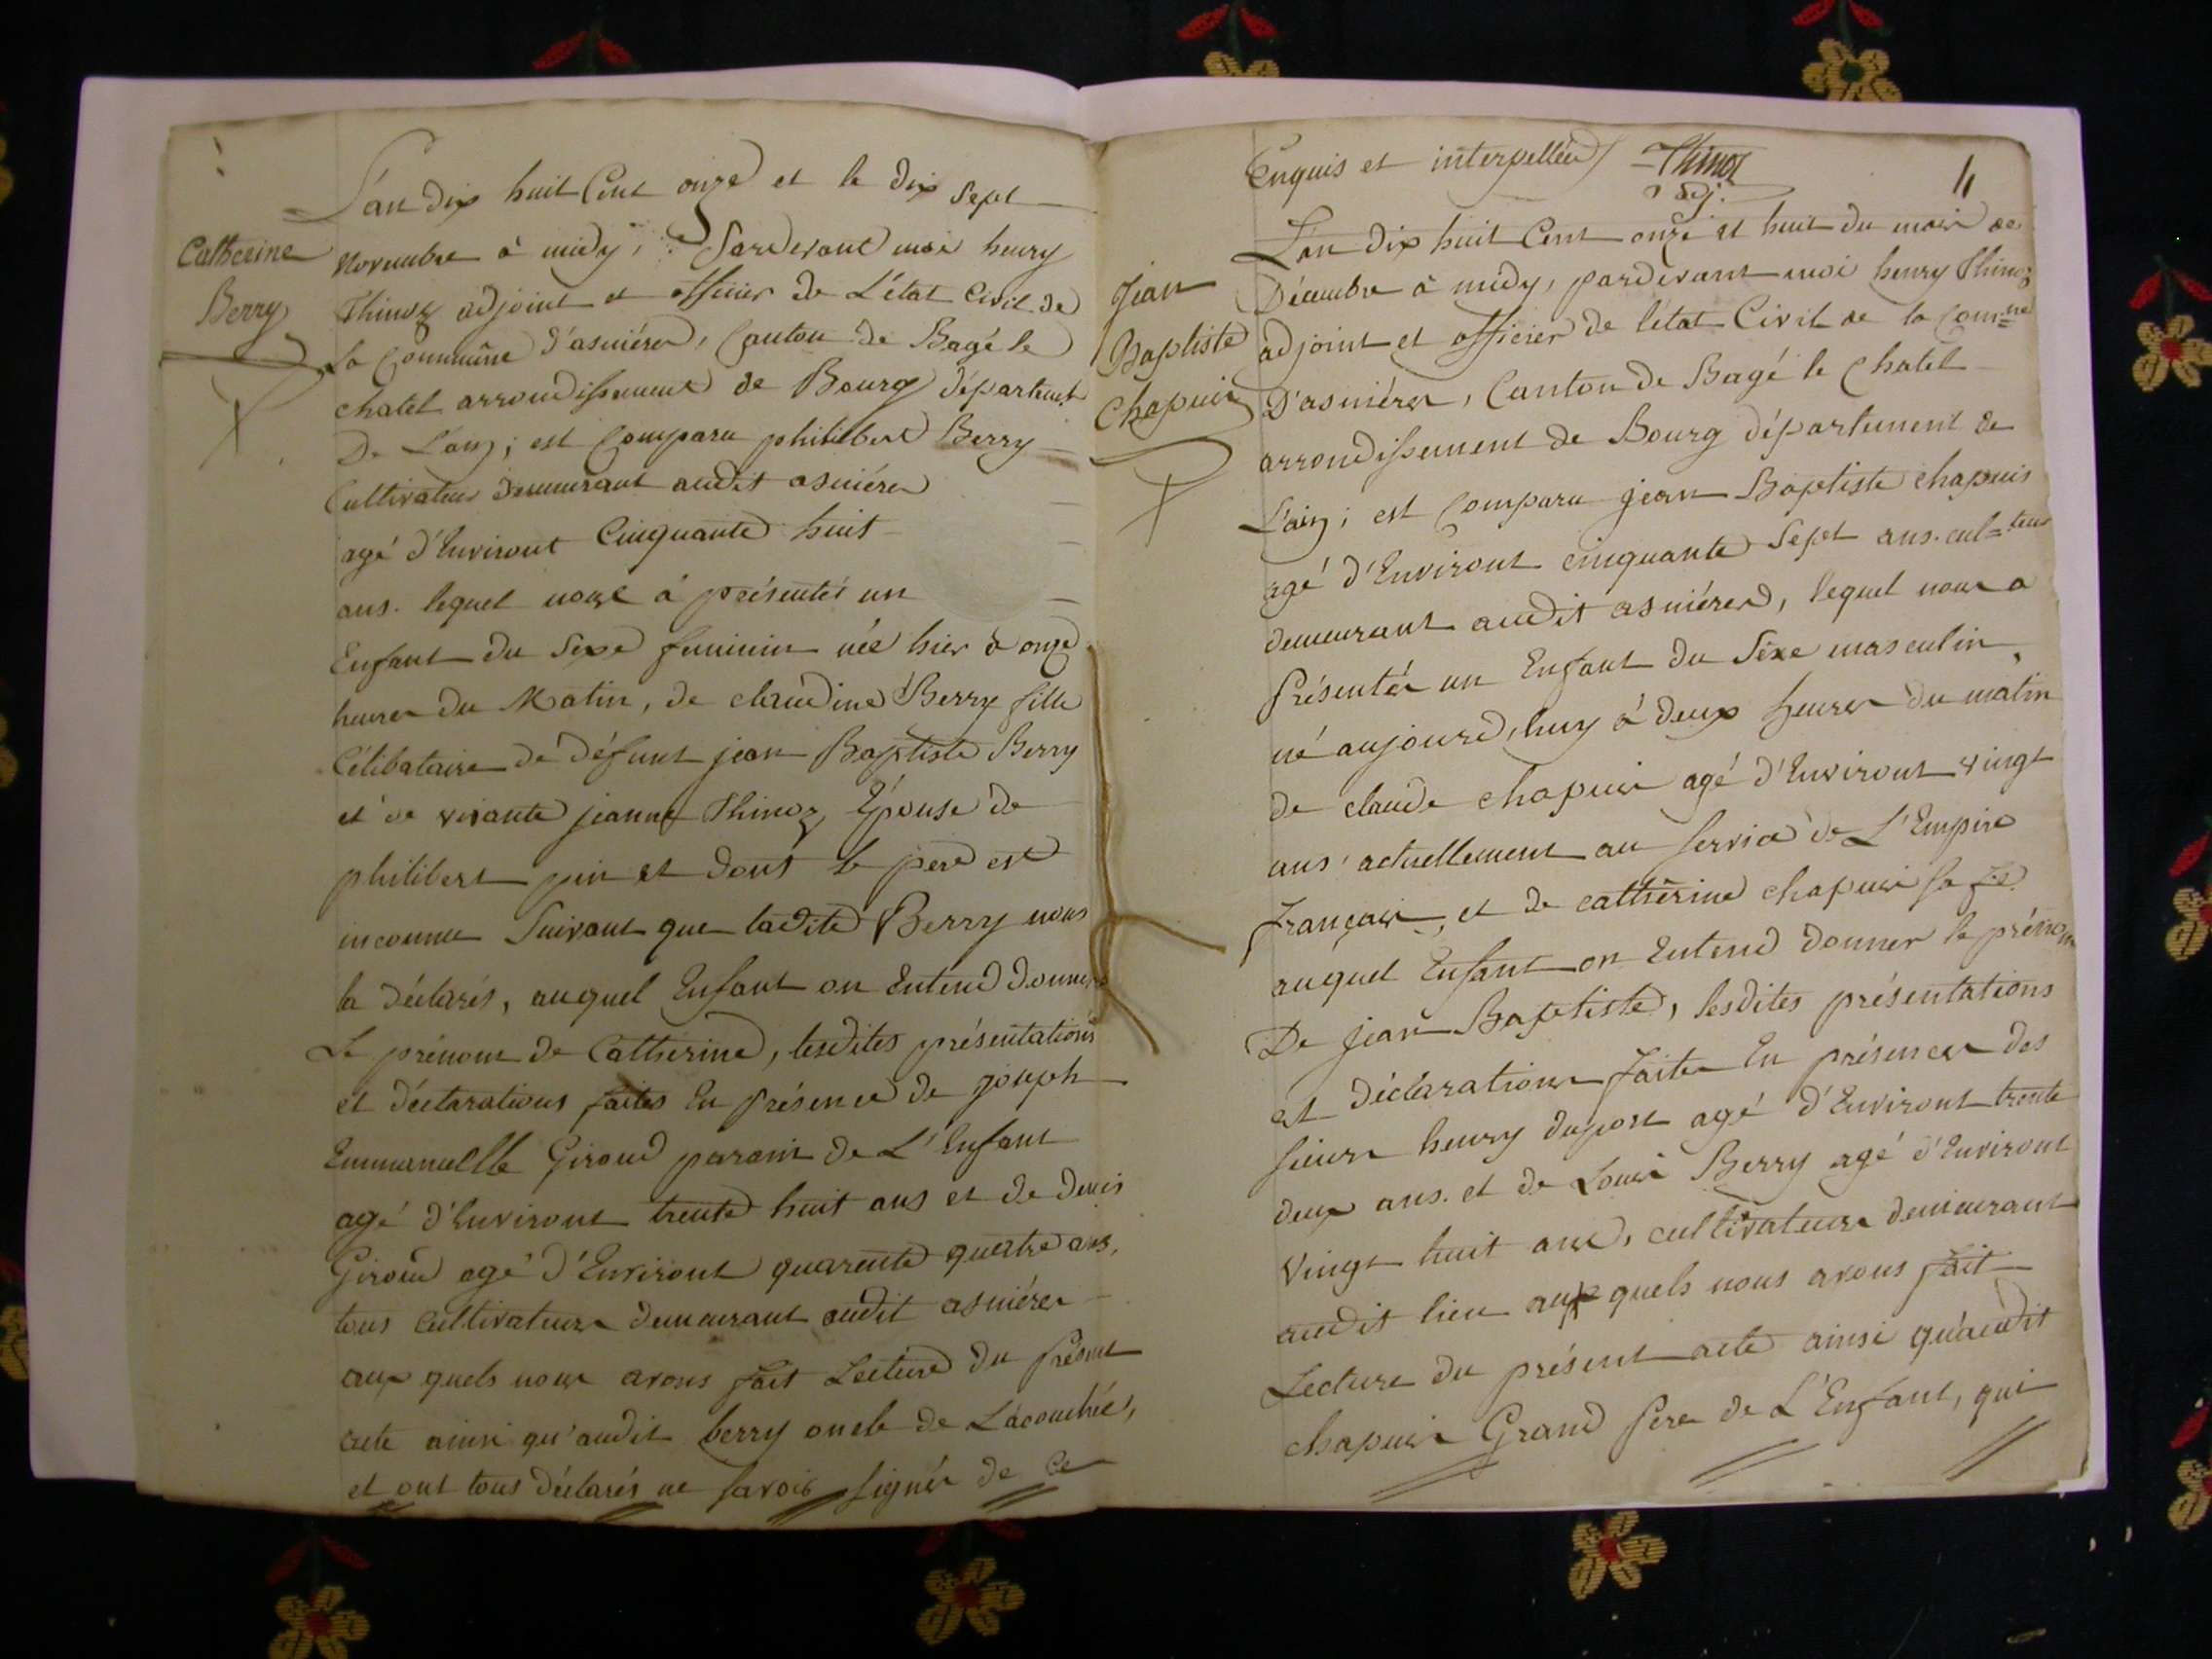 Catherine
Berry
L'an dix huit Cent onze et le dix sept
Novembre à midy, Pardevant moi henry
Thinoz adjoint et officier de L'état Civil de
la Commune d'asniéres, Canton de Bagé le
chatel arrondissement de Bourg départemt
De L'ain; est Comparu philibert Berry
Cultivateur demeurant audit asniéres
agé d'Environt Cinquante huit
ans. lequel nous à présentés un
Enfant du Sexe feminin née hier à onze
heures du Matin, de claudine Berry fille
Célibataire de défunt jean Baptiste Berry
et de vivante jeanne Thinoz Épouse de
philibert pin et dont le pere est
inconnu Suivant que ladite Berry nous
la déclarés, auquel Enfant on Entend donner
Le prénom de Catherine, lesdites présentations
et déclarations faites En présence de joseph
Emmanuelle Giroud parain de L'Enfant
agé d'Environt trente huit ans et de denis
Giroud agé d'Environt quarente quatre ans,
tous cultivateurs demeurant audit asniéres
aux quels nous avons fait Lecture du présent
acte ainsi qu'audit berry oncle de Lacouchée,
et ont tous déclarés ne savoir signér de ce
Enquis et interpellés Thinoz
adj.
Jean
Baptiste
Chapuis
L'an dix huit Cent onze et huit du mois de
Décembre à midy, pardevant moi henry Thinoz
adjoint et officier de l'état Civil de la Com=ne
D'asniéres, Canton de Bagé le Chatel
arrondissement de Bourg département de
L'ain; est Comparu jean Baptiste chapuis
agé d'Environt cinquante Sept ans. cul=teur
demeurant audit asniéres, lequel nous a
Présentés un Enfant du Sexe masculin,
né aujourd'huy à deux heures du matin
de claude chapuis agé d'Environt vingt
ans, actuellement au service de L'Empire
français, et de cathérine chapuis sa fe.
auquel Enfant on Entend donner le prénom
De jean Baptiste, lesdites présentations
et déclarations faites En présences des
sieurs henry dupont agé d'Environt trente
deux ans. et de Louis Berry agé d'Environt
vingt huit ans, cultivateurs demeurant
audit lieu aux quels nous avons fait
Lecture du présent acte ainsi qu'audit
chapuis Grand Pere de L'Enfant, qui